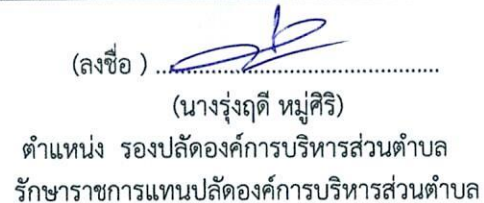 (ลงชื่อ ) ........................................
(นางรุ่งฤดี หมู่ศิริ)
ตำแหน่ง รองปลัดองค์การบริหารส่วนตำบล
รักษาราชการแทนปลัดองค์การบริหารส่วนตำบล